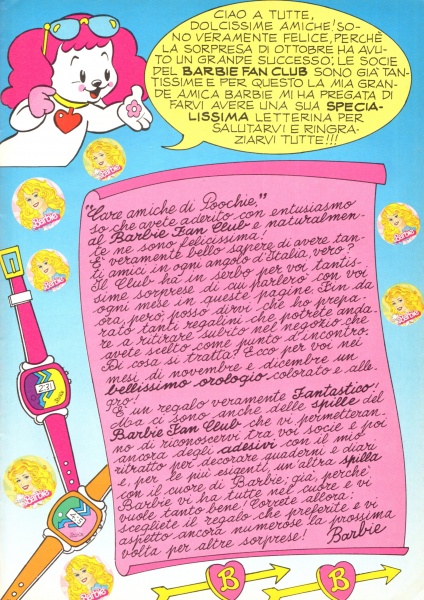 CIAO A TUTTE,
DOLCISSIME AMICHE! SO-
NO VERAMENTE FELICE, PERCHÈ
LA SORPRESA DI OTTOBRE HA AVU-
TO UN GRANDE SUCCESSO; LE SOCIE
DEL BARBIE FAN CLUB SONO GIA' TAN-
TISSIME E PER QUESTO LA MIA GRAN-
DE AMICA BARBIE MI HA PREGATA DI
FARVI AVERE UNA SUA SPECIA-
LISSIMA LETTERINA PER
SALUTARVI E RINGRA-
ZIARVI TUTTE!!!
"Care amiche di Poochie,"
so che avete aderito con entusiasmo
al Barbie Fan Club e naturalmen-
te ne sono felicissima!
E' veramente bello sapere di avere tan-
ti amici in ogni angolo d'Italia, vero?
Il Club ha in serbo per voi tantis-
sime sorprese di cui parlerò con voi
ogni mese in queste pagine. Fin da
ora, però, posso dirvi che ho prepa-
rato tanti regalini che potrete anda-
re a ritirare subito nel negozio che
avete scelto come punto d'incontro.
Di cosa si tratta? Ecco per voi nei
mesi di novembre e dicembre un
bellissimo orologio colorato e alle-
gro!
E' un regalo veramente Fantastico!
Ma ci sono anche delle spille del
Barbie Fan Club che vi permetteran-
no di riconoscervi tra voi socie e poi
ancora degli adesivi con il mio
ritratto per decorare quaderni e diari
e, per le più esigenti, un'altra spilla
con il cuore di Barbie: già, perchè
Barbie vi ha tutte nel cuore e vi
vuole tanto bene! Correte allora:
scegliete il regalo che preferite e vi
aspetto ancora numerose la prossima
volta per altre sorprese! Barbie
Barbie
Barbie
Barbie
Barbie
Barbie
Barbie
Barbie
B
B